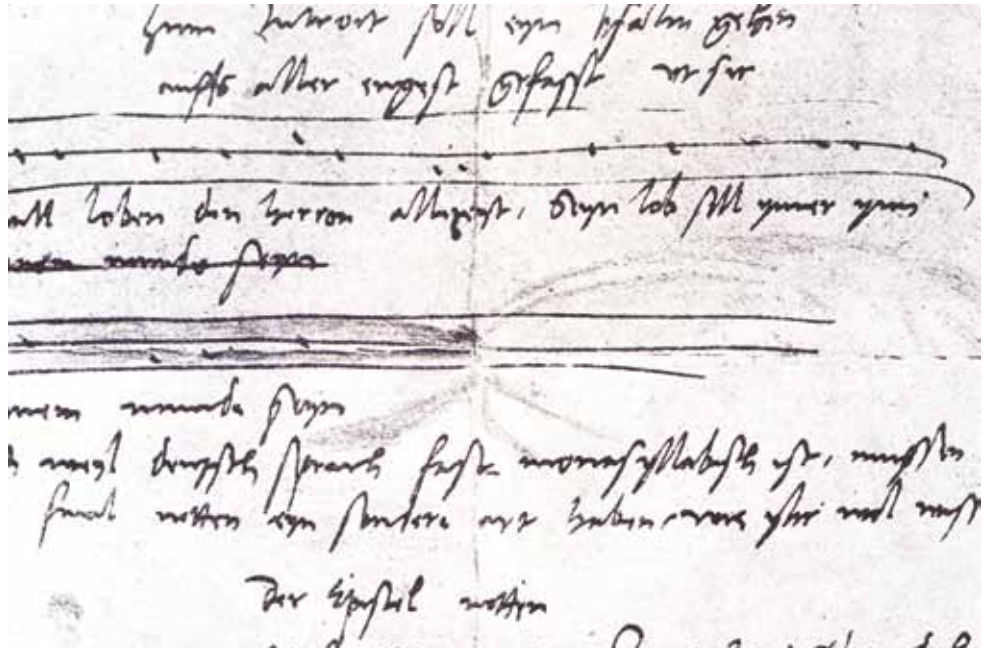 zum Introit soll eyn psalm gehen
auffs aller engest gefasst ut sic
will loben den herren allezeyt, Seyn lob soll ymer ynn
nem munde seyn
nem munde seyn
weyl deutzsch sprach fast monosyllabisch ist, mussen
final notten eyn sondere art haben
Der Epistel notten